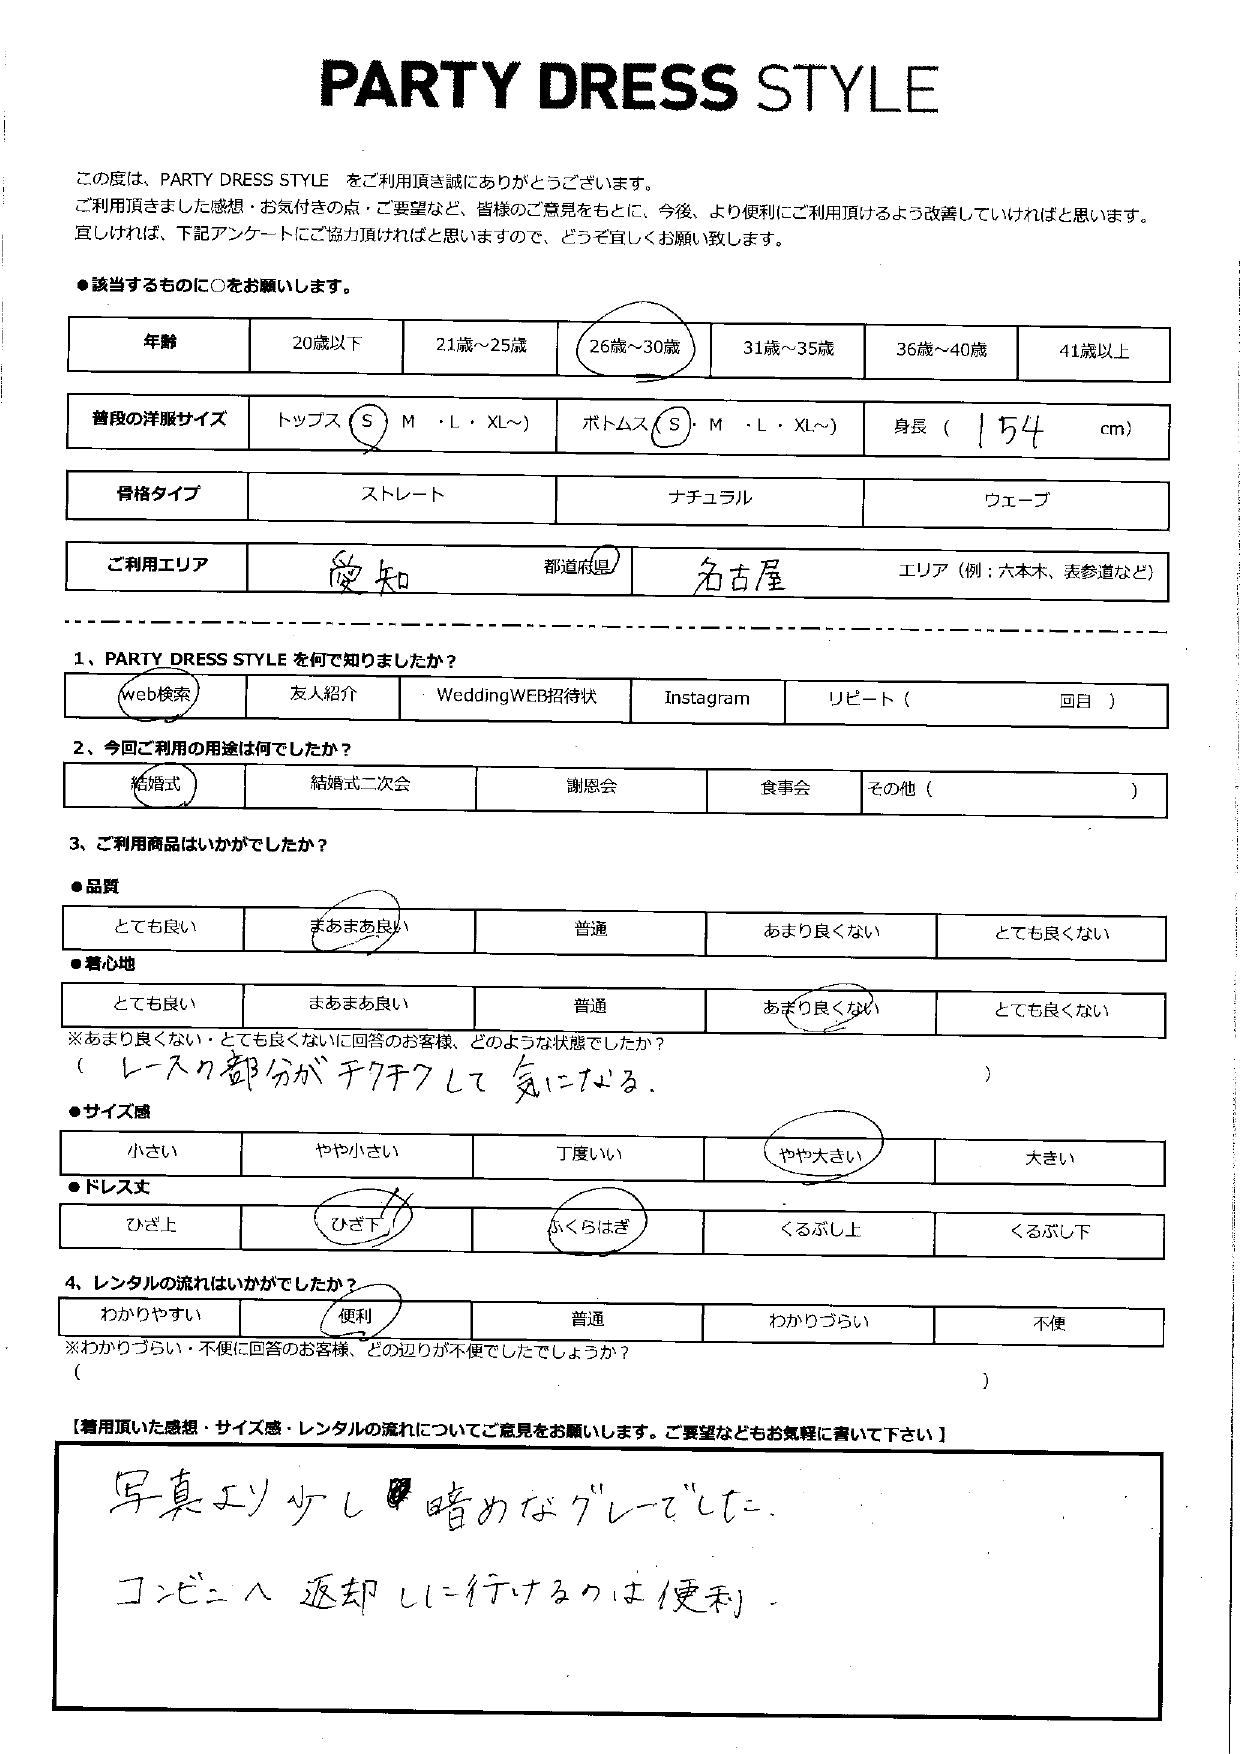 PARTY DRESS STYLE
この度は、PARTY DRESS STYLE をご利用頂き誠にありがとうございます。
ご利用頂きました感想・お気付きの点・ご要望など、皆様のご意見をもとに、今後、より便利にご利用頂けるよう改善していければと思います。
宜しければ、下記アンケートにご協力頂ければと思いますので、どうぞ宜しくお願い致します。
●該当するものに〇をお願いします。
年齢 20歳以下 21歳～25歳 26歳～30歳 31歳～35歳 36歳～40歳 41歳以上
普段の洋服サイズ トップス（S・M ・L・XL～) ボトムス（S・M ・L・XL～) 身長 （ 154 cm）
骨格タイプ ストレート ナチュラル ウェーブ
ご利用エリア 愛知 都道府県 名古屋 エリア（例：六本木、表参道など）
1、PARTY DRESS STYLE を何で知りましたか？
web検索 友人紹介 WeddingWEB招待状 Instagram リピート（ 回目 ）
2、今回ご利用の用途は何でしたか？
結婚式 結婚式二次会 謝恩会 食事会 その他（ ）
3、ご利用商品はいかがでしたか？
●品質
とても良い まあまあ良い 普通 あまり良くない とても良くない
●着心地
とても良い まあまあ良い 普通 あまり良くない とても良くない
※あまり良くない・とても良くないに回答のお客様、どのような状態でしたか？
（ レースの部分がチクチクして気になる. ）
●サイズ感
小さい やや小さい 丁度いい やや大きい 大きい
●ドレス丈
ひざ上 ひざ下 ふくらはぎ くるぶし上 くるぶし下
4、レンタルの流れはいかがでしたか？
わかりやすい 便利 普通 わかりづらい 不便
※わかりづらい・不便に回答のお客様、どの辺りが不便でしたでしょうか？
（ ）
【着用頂いた感想・サイズ感・レンタルの流れについてご意見をお願いします。ご要望などもお気軽に書いて下さい 】
写真より少し暗めなグレーでした.
コンビニへ返却しに行けるのは便利.